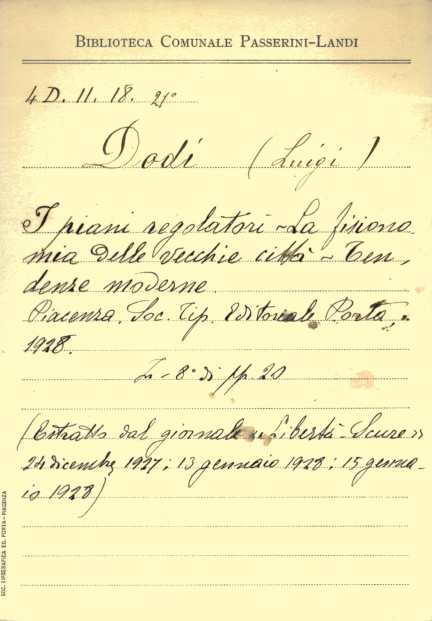 BIBLIOTECA COMUNALE PASSERINI-LANDI
4 D. 11. 18. 21°
Dodi (Luigi)
I piani regolatori - La fisiono
mia delle vecchie città - Ten,
denze moderne.
Piacenza. Soc. Tip. Editoriale Porta,
1928.
In-8° di pp. 20
(Estratto dal giornale «Libertà-Scure»
24 dicembre 1927; 13 gennaio 1928; 15 genna-
io 1928)
SOC. TIPOGRAFICA ED. PORTA - PIACENZA